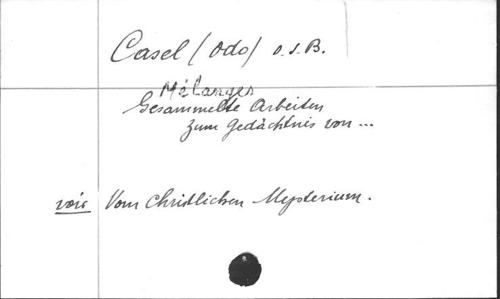 Casel (Odo) O.S.B.
Mélanges
Gesammelte Arbeiten
zum Gedächtnis von ...
voir Vom Christlichen Mysterium.